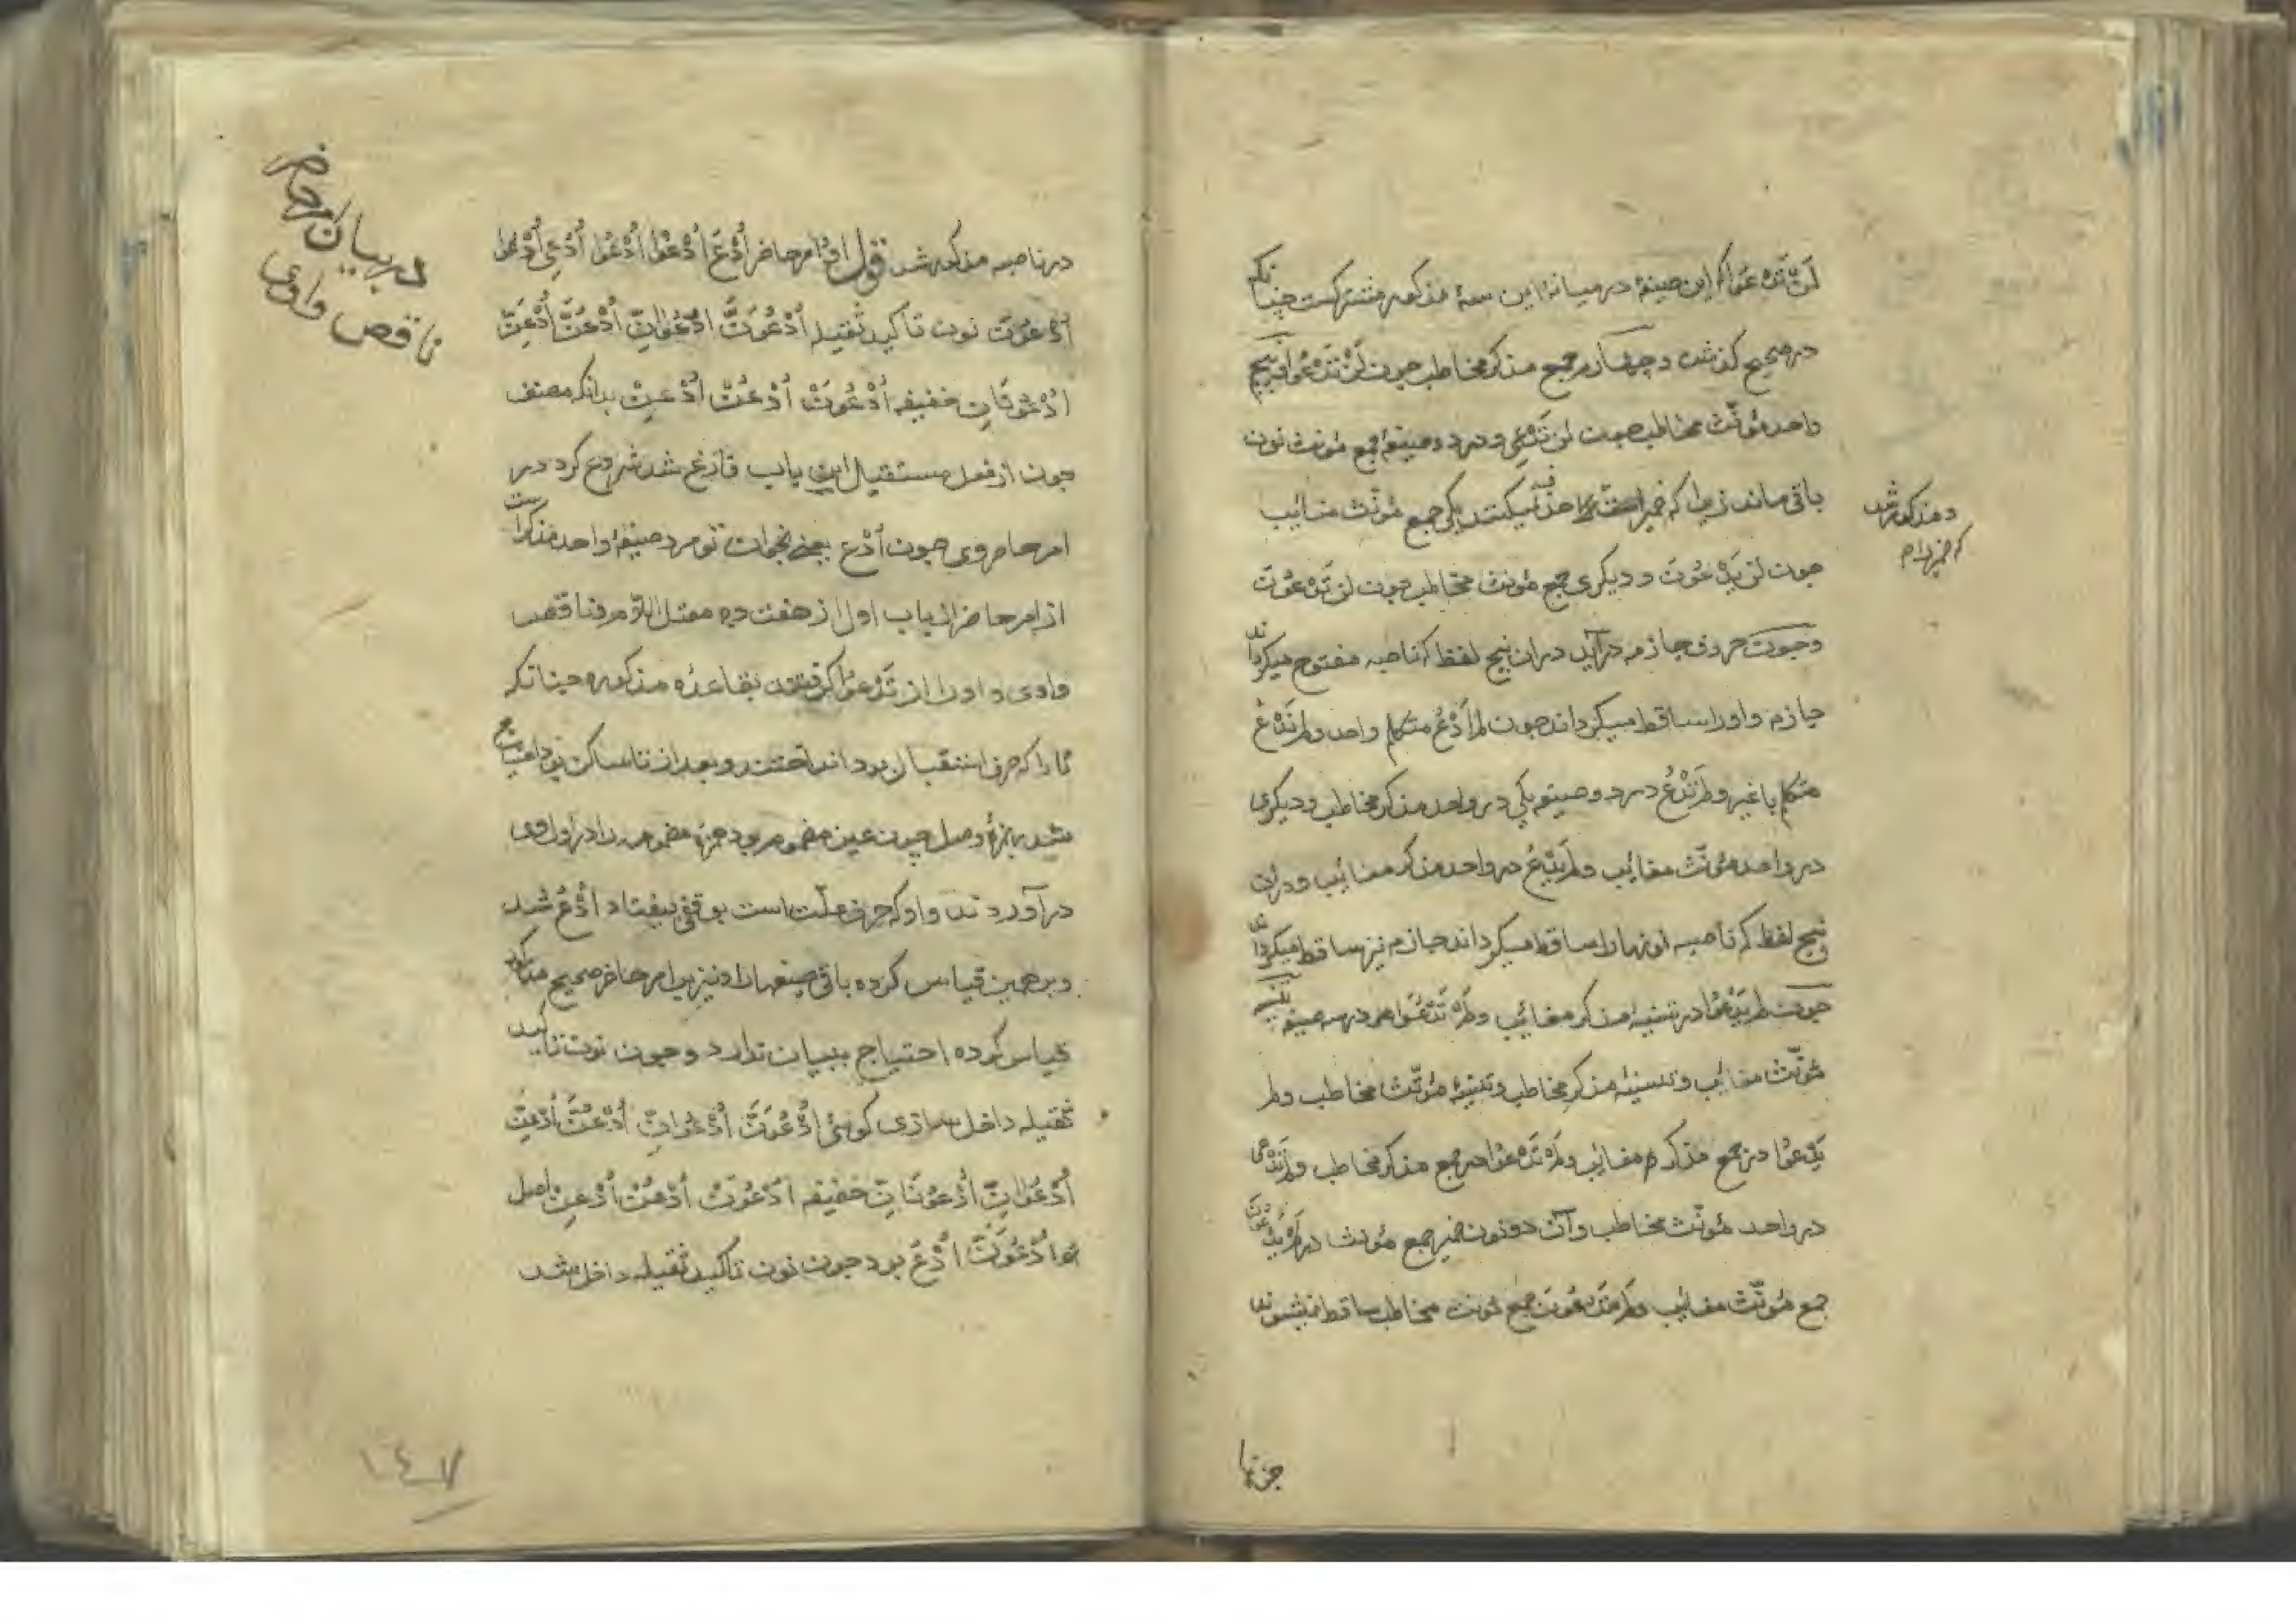 لَنْ تَدْعُوَا که این صیغهٔ در میانهٔ این سهٔ مذکور مشترکست چنانکه
در صحیح گذشت و چهارم جمع مذکر مخاطب چون لَنْ تَدْعُوا و پنج
واحد مؤنّث مخاطب چون لن تَدْعِی و در دو صیغهٔ جمع مؤنث نون
باقی ماند زیرا که ضمیر است حذف نمیکنند یکی جمع مؤنّث مغائب
چون لن یَدْعُونَ و دیکری جمع مؤنث مخاطب چون لن تَدْعُونَ
و چون حروف جازمه درآید در ان پنج لفظ که ناصبه مفتوح میکرداند
جازم واو را ساقط میکرداند چون لم اَدْعُ متکلم واحد ولم نَدْعُ
متکلم با غیر ولم تَدْعُ در دو صیغه یکی در واحد مذکر مخاطب و دیکری
در واحد مؤنّث مغائب ولم یَدْعُ در واحد مذکر مغائب و در ان
پنج لفظ که ناصبه نونها را ساقط میکرداند جازم نیز ساقط میکرداند
چون لم یَدْعُوَا در تثنیهٔ مذکر مغائب ولم تَدْعُوَا در سه صیغه تثنیه
مؤنّث مغائب و تثنیهٔ مذکر مخاطب و تثنیهٔ مؤنّث مخاطب ولم
یَدْعُوا در جمع مذکر مغائب ولم تَدْعُوا در جمع مذکر مخاطب ولم تَدْعِی
در واحد مؤنّث مخاطب وآن دو نون ضمیر جمع مؤنث در لم یَدْعُونَ
جمع مؤنّث مغائب ولم تَدْعُونَ جمع مؤنث مخاطب ساقط نمیشوند
و مذکور شد
که ضمیر
در ناصبه مذکور شد قول او امر حاضر اُدْعُ اُدْعُوَا اُدْعُوا اُدْعِی اُدْعُوَا
اُدْعُونَ نون تاکید ثقیله اُدْعُوَنَّ اُدْعُوَانِّ اُدْعُنَّ اُدْعِنَّ
اُدْعُونَانِّ خفیفه اُدْعُوَنْ اُدْعُنْ اُدْعِنْ بدانکه مصنف
چون از فعل مستقبال این باب فارغ شد شروع کرد در
امر حاضر وی چون اُدْعُ یعنی بخوان تو مرد صیغهٔ واحد مذکر است
از امر حاضر از باب اول از هفت ده معتل اللام ناقص
واوی و او را از تَدْعُوا کرفتند بقاعدهٔ مذکوره چنانکه
تا را که حرف استقبال بود انداختند و بعد از تا ساکن بود احتیاج
شد بهمزهٔ وصل چون عین مضموم بود همزهٔ مضمومه را در اول وی
درآوردند واو که حرف علّت است بوقفی بیفتاد اُدْعُ شد
و بر همین قیاس کرده باقی صیغها را و نیز بر امر حاضر صحیح مذکور
قیاس کرده احتیاج ببیان ندارد و چون نون تاکید
ثقیله داخل سازی کوئی اُدْعُوَنَّ اُدْعُوَانِّ اُدْعُنَّ اُدْعِنَّ
اُدْعُوَانِّ اُدْعُونَانِّ خفیفه اُدْعُوَنْ اُدْعُنْ اُدْعِنْ اصل
اُدْعُوَنَّ اُدْعُ بود چون نون تاکید ثقیله داخل شد
در بیان امر حاضر
ناقص واوی
۱٤۷